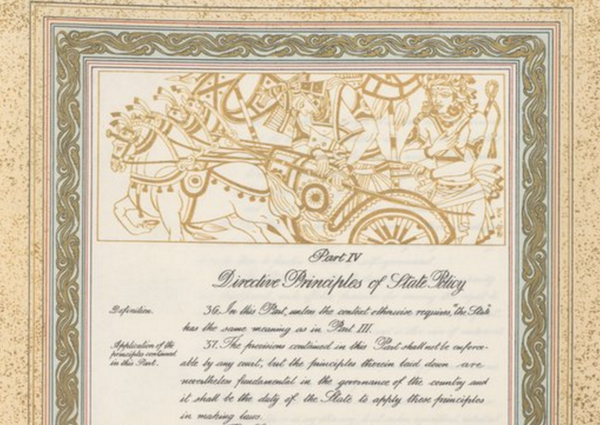 Part IV
Directive Principles of State Policy
Definition.
36. In this Part, unless the context otherwise requires, "the State"
has the same meaning as in Part III.
Application of the
principles contained
in this Part.
37. The provisions contained in this Part shall not be enforce-
able by any court, but the principles therein laid down are
nevertheless fundamental in the governance of the country and
it shall be the duty of the State to apply these principles
in making laws.